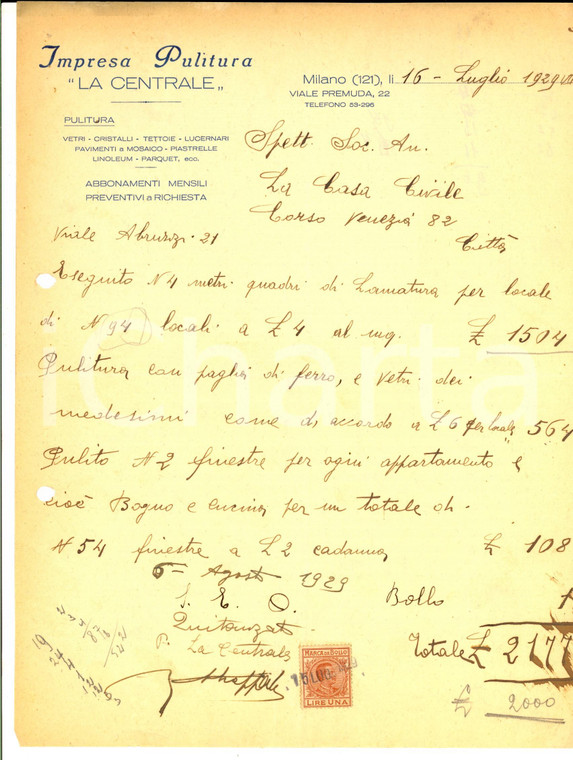 Impresa Pulitura
"LA CENTRALE„
Milano (121), li 16 - Luglio 1929
VIALE PREMUDA, 22
TELEFONO 53-296
PULITURA
VETRI - CRISTALLI - TETTOIE - LUCERNARI
PAVIMENTI a MOSAICO - PIASTRELLE
LINOLEUM - PARQUET, ecc.
ABBONAMENTI MENSILI
PREVENTIVI a RICHIESTA
Spett. Soc. An.
La Casa Civile
Corso Venezia 82
Città
Viale Abruzzi 21
Eseguito N 4 metri quadri di Lamatura per locale
di N 94 locali a £ 4 al mq. £ 1504
Pulitura con paglia di ferro, e vetri dei
medesimi come di accordo a £ 6 per locale 564
Pulito N 2 finestre per ogni appartamento e
cioè Bagno e cucina per un totale di
N 54 finestre a £ 2 cadauna £ 108
6 - Agosto 1929
S. E. O. Bollo 1
Quitanzata
p. La Centrale
Totale £ 2177
£ 2000
MARCA DA BOLLO
LIRE UNA
iCharta